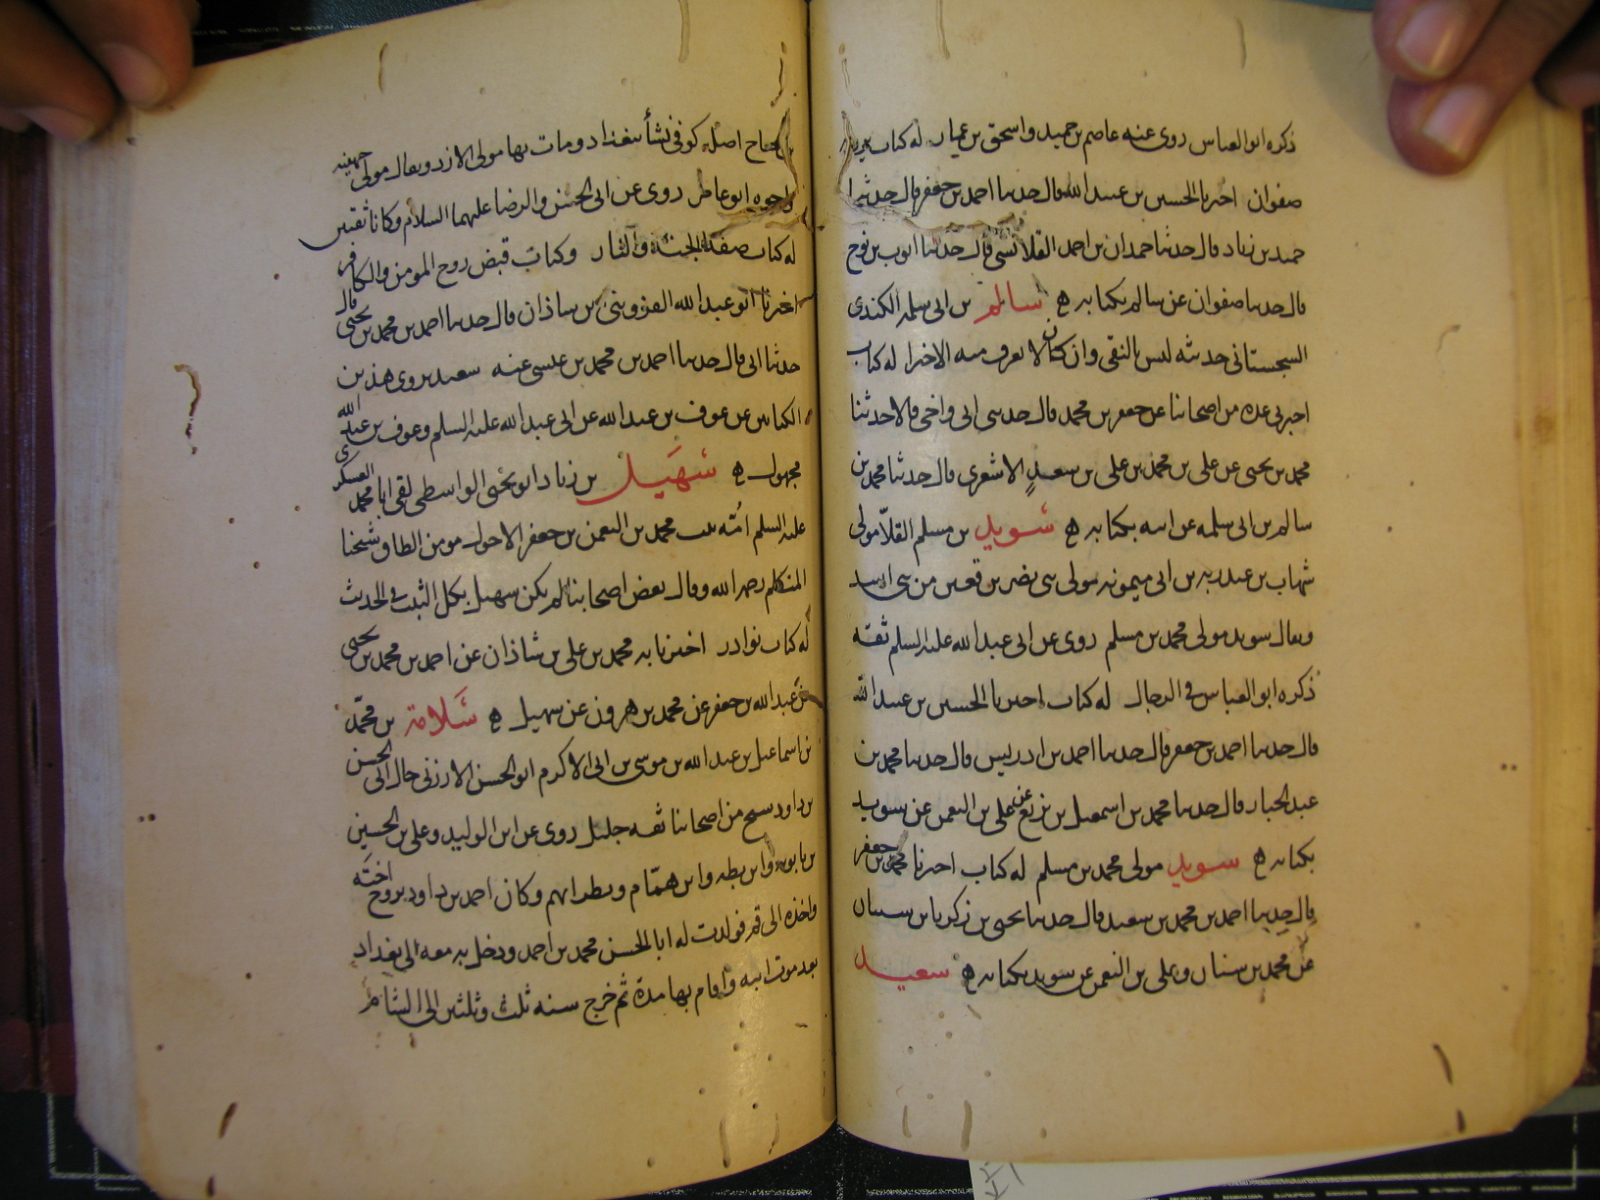 ذكره ابو العباس روى عنه عاصم بن حميد واسحق بن عمار له كتاب يرويه
صفوان اخبرنا الحسين بن عبيد الله قال حدثنا احمد بن جعفر قال حدثنا
حميد بن زياد قال حدثنا حمدان بن احمد القلانسى قال حدثنا ايوب بن نوح
قال حدثنا صفوان عن سالم بكتابه ه سالم بن ابى سلمه الكندى
السجستانى حديثه ليس بالنقى وان كنا لا نعرف منه الا خيرا له كتاب
اخبرنى عدة من اصحابنا عن جعفر بن محمد قال حدثنى ابى واخى قالا حدثنا
محمد بن يحيى عن على بن محمد بن على بن سعيد الاشعرى قال حدثنا محمد بن
سالم بن ابى سلمه عن ابيه بكتابه ه سويد بن مسلم القلا مولى
شهاب بن عبد ربه بن ابى ميمونه مولى بنى نصر بن قعين من بنى اسد
ويقال سويد مولى محمد بن مسلم روى عن ابى عبد الله عليه السلم ثقه
ذكره ابو العباس فى الرجال له كتاب اخبرنا الحسين بن عبيد الله
قال حدثنا احمد بن جعفر قال حدثنا احمد بن ادريس قال حدثنا محمد بن
عبد الجبار قال حدثنا محمد بن اسمعيل بن بزيع عن على بن النعمن عن سويد
بكتابه ه سويد مولى محمد بن مسلم له كتاب اخبرنا محمد بن جعفر
قال حدثنا احمد بن محمد بن سعيد قال حدثنا يحيى بن زكريا بن سنان
عن محمد بن سنان وعلى بن النعمن عن سويد بكتابه ه سعيد
بن جناح اصله كوفى نشأ ببغداد ومات بها مولى الازد ويقال مولى جهينه
واخوه ابو عامر روى عن ابى الحسن والرضا عليهما السلام وكانا ثقتين
له كتاب صفة الجنة والنار وكتاب قبض روح المومن والكافر
اخبرنا ابو عبد الله القزوينى بن شاذان قال حدثنا احمد بن محمد بن يحيى قال
حدثنا ابى قال حدثنا احمد بن محمد بن عيسى عنه سعيد يروى هذين
الكتابين عن عوف بن عبد الله عن ابى عبد الله عليه السلم وعوف بن عبد الله
مجهول ه سهيل بن زياد ابو يحيى الواسطى لقى ابا محمد العسكرى
عليه السلم امّه بنت محمد بن النعمن بن جعفر الاحول مومن الطاق شيخنا
المتكلم رحمه الله وقال بعض اصحابنا لم يكن سهيل بكل الثبت فى الحديث
له كتاب نوادر اخبرنا به محمد بن على بن شاذان عن احمد بن محمد بن يحيى
عن عبد الله بن جعفر عن محمد بن هرون عن سهيل ه سلامة بن محمّد
بن اسماعيل بن عبد الله بن موسى بن ابى الاكرم ابو الحسن الارزنى خال ابى الحسن
بن داود شيخ من اصحابنا ثقه جليل روى عن ابن الوليد وعلى بن الحسين
بن بابويه وابن بطه وابن همّام ونظرائهم وكان احمد بن داود تزوج اخته
واخذه الى قم فولدت له ابا الحسن محمد بن احمد ودخل به معه الى بغداد
بعد موت ابيه واقام بها مدة ثم خرج سنه ثلث وثلثين الى الشام